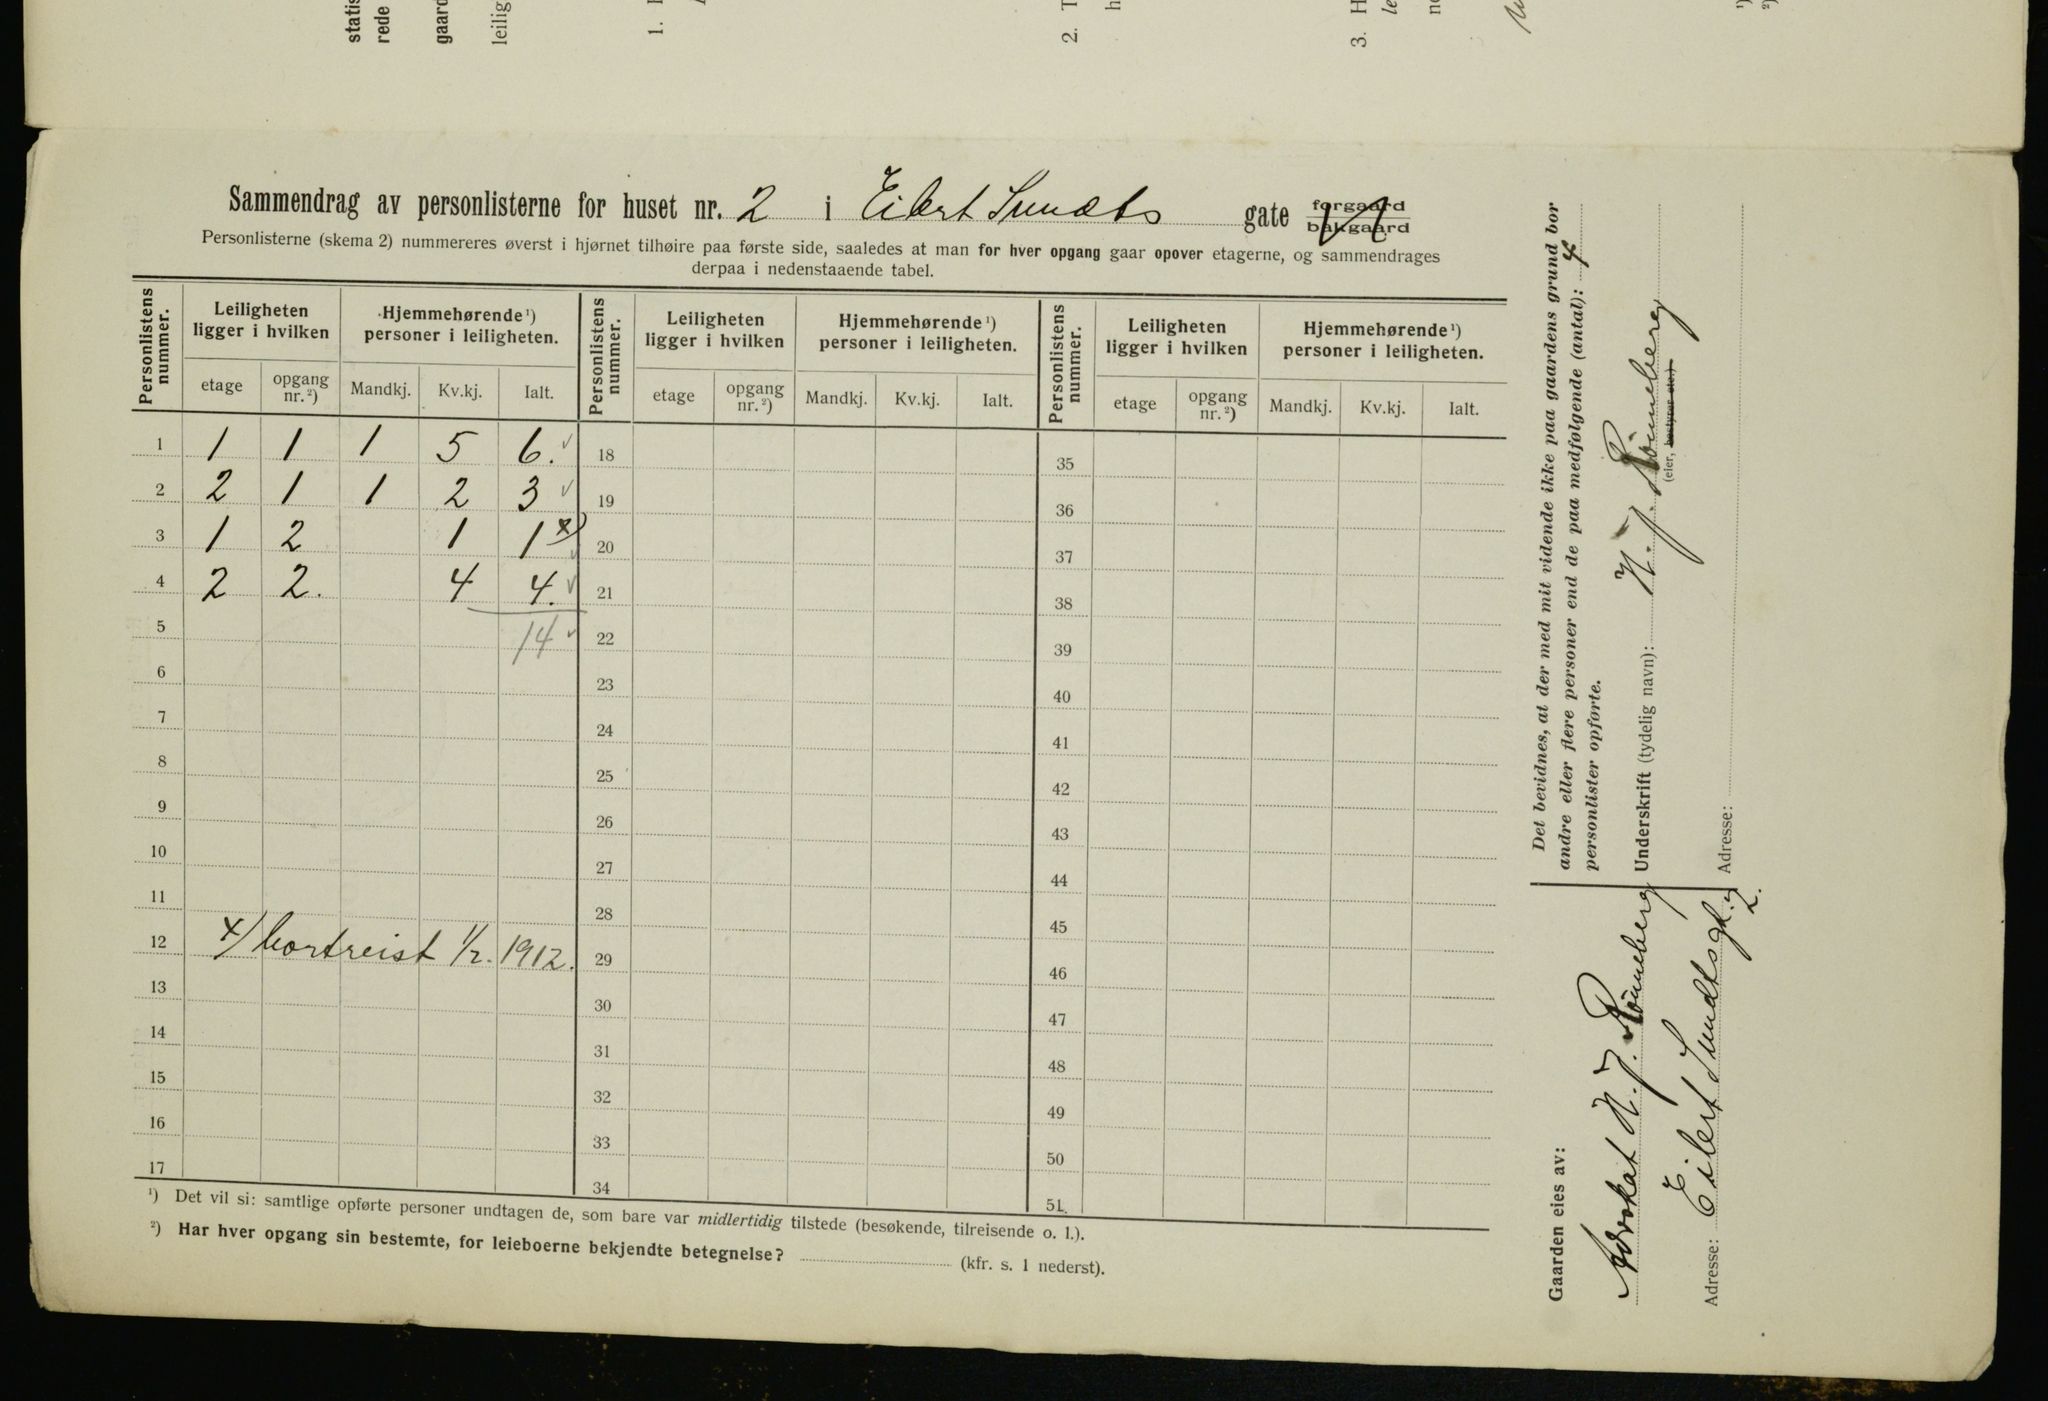 statis
rede
gaard
leilig
1.
2. T
h
3. H
le
n
Sammendrag av personlisterne for huset nr. 2 i Eilert Sundts gate forgaard bakgaard
Personlisterne (skema 2) nummereres øverst i hjørnet tilhøire paa første side, saaledes at man for hver opgang gaar opover etagerne, og sammendrages
derpaa i nedenstaaende tabel.
Personlistens nummer. Leiligheten ligger i hvilken Hjemmehørende ¹) personer i leiligheten. Personlistens nummer. Leiligheten ligger i hvilken Hjemmehørende ¹) personer i leiligheten. Personlistens nummer. Leiligheten ligger i hvilken Hjemmehørende ¹) personer i leiligheten.
etage opgang nr. ²) Mandkj. Kv.kj. Ialt. etage opgang nr. ²) Mandkj. Kv.kj. Ialt. etage opgang nr. ²) Mandkj. Kv.kj. Ialt.
1 1 1 1 5 6. ✓ 18 35
2 2 1 1 2 3 ✓ 19 36
3 1 2 1 1 x) ✓ 20 37
4 2 2. 4 4. ✓ 21 38
5 14 ✓ 22 39
6 23 40
7 24 41
8 25 42
9 26 43
10 27 44
11 28 45
12 x) bortreist 1/2. 1912. 29 46
13 30 47
14 31 48
15 32 49
16 33 50
17 34 51.
¹) Det vil si: samtlige opførte personer undtagen de, som bare var midlertidig tilstede (besøkende, tilreisende o. l.).
²) Har hver opgang sin bestemte, for leieboerne bekjendte betegnelse? (kfr. s. 1 nederst).
Gaarden eies av:
Advokat N. J. Rönneberg
Adresse: Eilert Sundtsgt.
2.
Det bevidnes, at der med mit vidende ikke paa gaardens grund bor
andre eller flere personer end de paa medfølgende (antal): 4
personlister opførte.
Underskrift (tydelig navn): N. J. Rönneberg
(eier, bestyrer etc.)
Adresse: